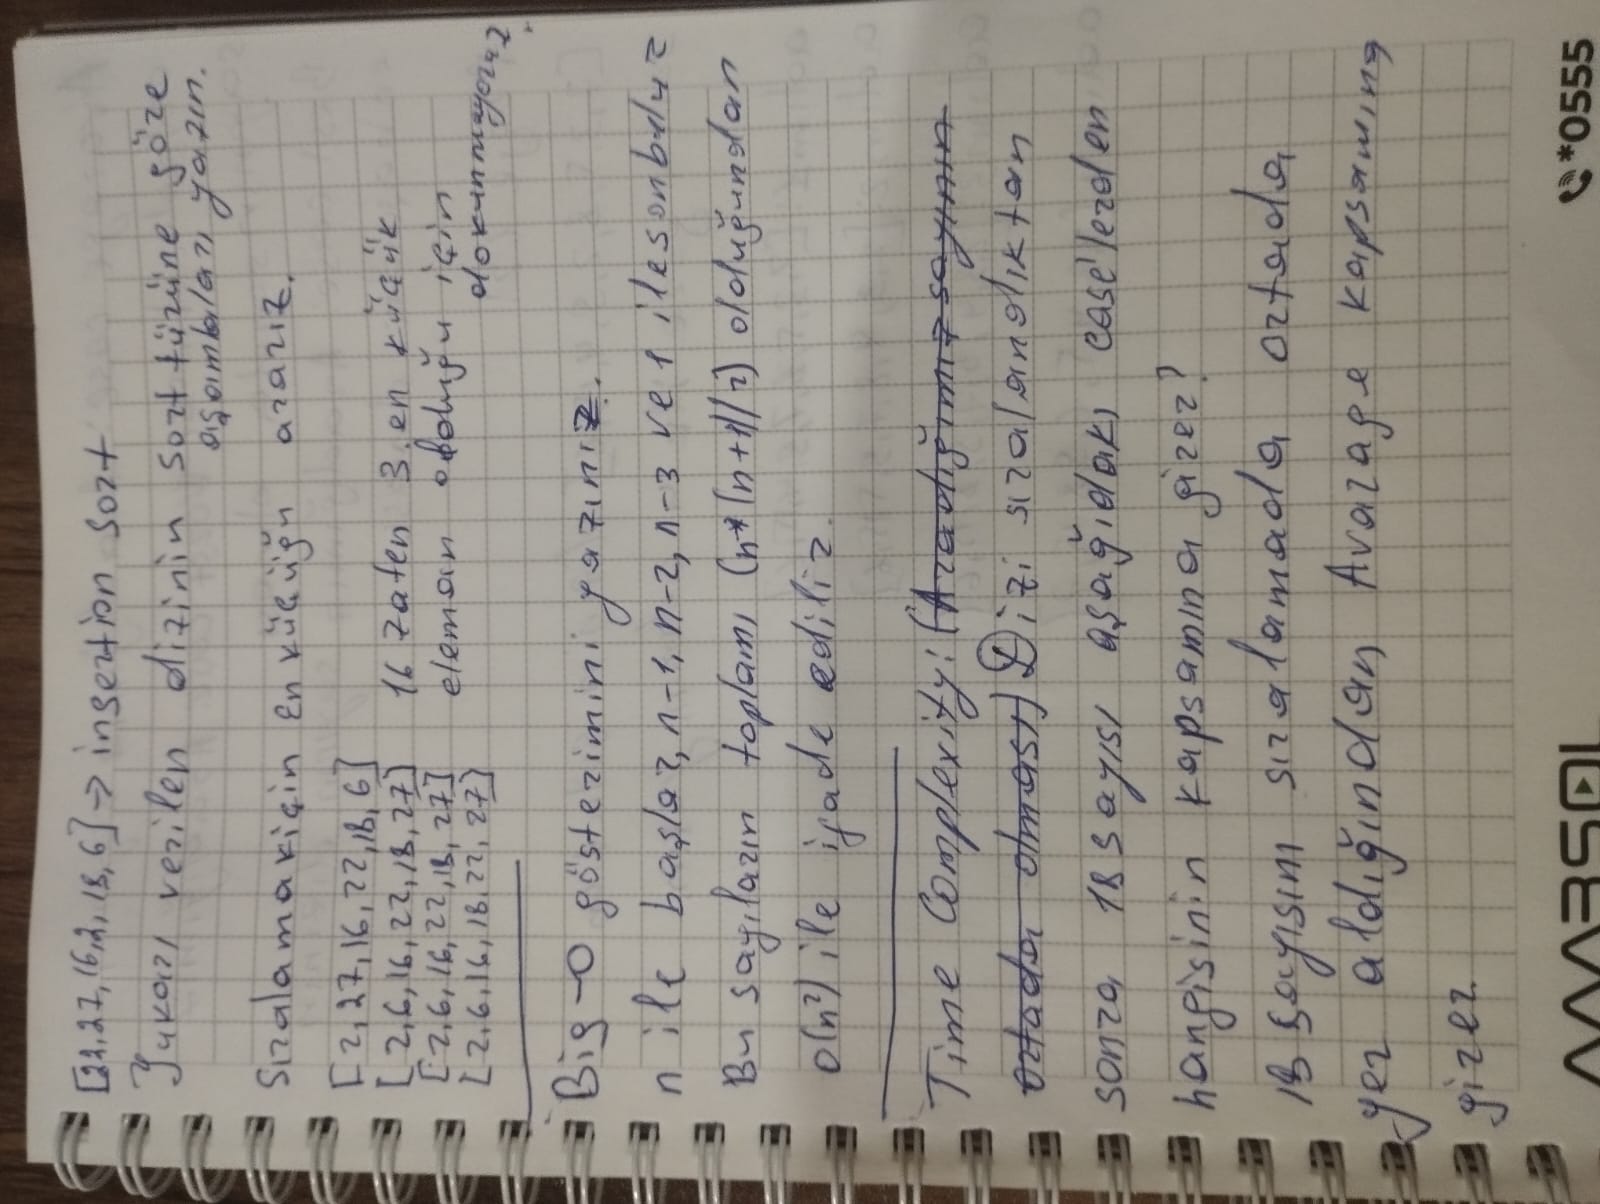 [22,27,16,2,18,6] -> insertion sort
Yukarı verilen dizinin sort türüne göre
aşamaları yazın.
Sıralamak için en küçüğü ararız.
[2,27,16,22,18,6]
[2,6,16,22,18,27] 16 zaten 3. en küçük
[2,6,16,22,18,27] eleman olduğu için
[2,6,16,18,22,27] dokunmuyoruz.
Big-O gösterimini yazınız.
n ile başlar, n-1, n-2, n-3 ve 1 ile son bulur
Bu sayıların toplamı (n*(n+1)/2) olduğundan
O(n²) ile ifade edilir.
Time Complexity: (Aradığımız sayının
ortada olması) Dizi sıralandıktan
sonra 18 sayısı aşağıdaki case'lerden
hangisinin kapsamına girer?
18 sayısını sıralamada ortada
yer aldığından Avarage kapsamına
girer
MABSOL
*0555